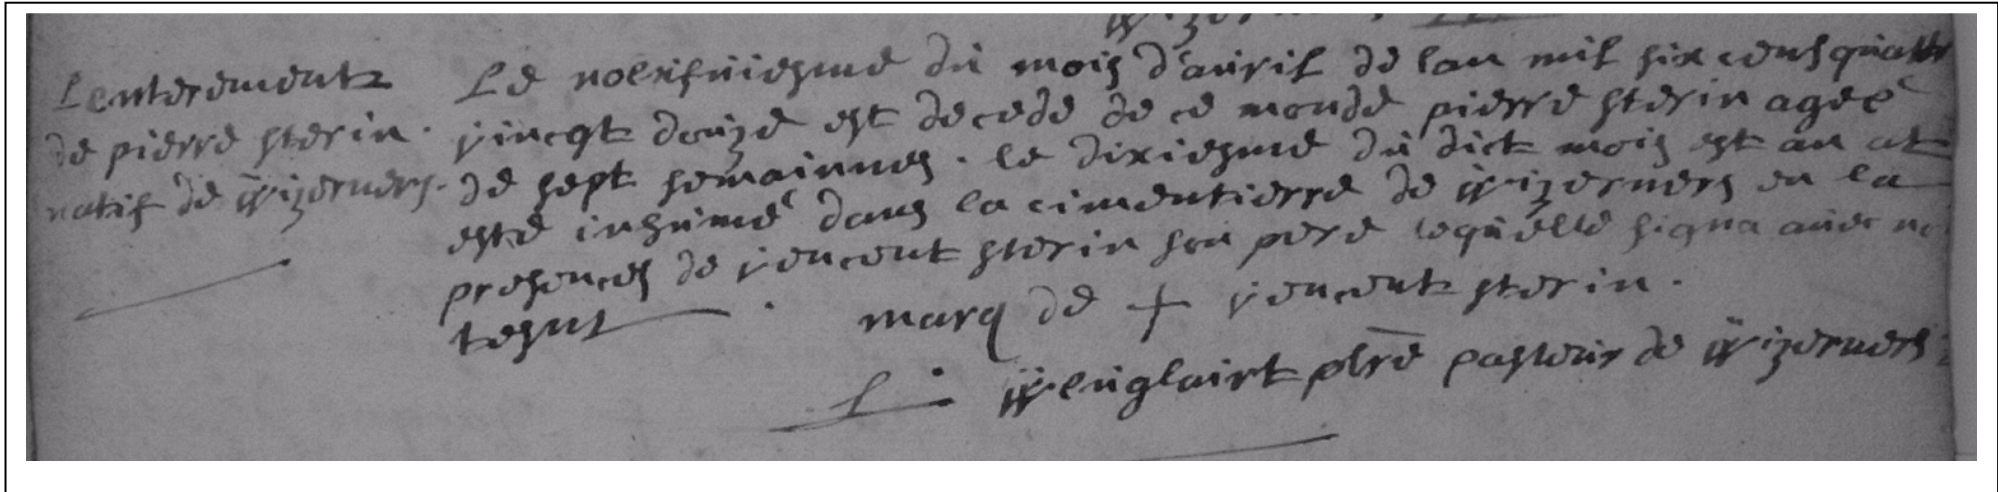 Lenterement
de pierre sterin.
natif de wizerners.
Le noeifuiesme du mois d'auril de lan mil six cens quattre
vincqt douze est decedé de ce monde pierre sterin ageé
de sept semainnes. le dixiesme du dict mois est an at
esté inhumé dans la cimentierre de wizerners en la
presences de vencent sterin son pere lequelle signa auec
marq de + vencent sterin.
L. Wenglairt pbre pasteur de wizerners